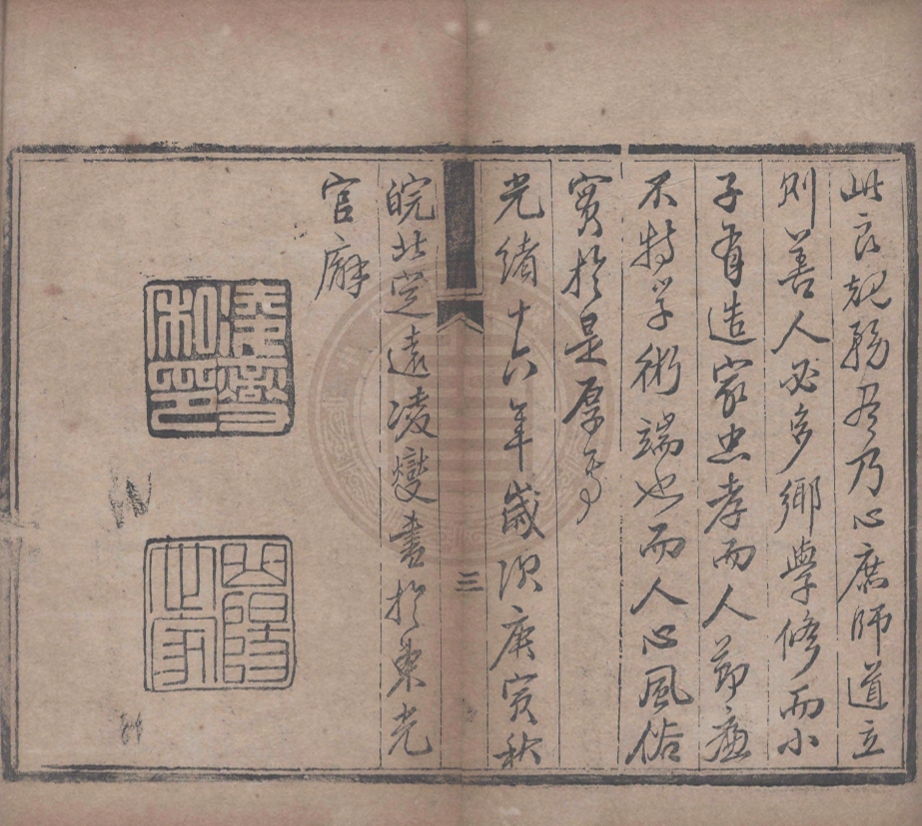 此良規務尽乃心庶師道立
則善人必多鄉學修而小
子有造家忠孝而人節廉
不特学術端也而人心風俗
實於是厚焉
光緒十六年歲次庚寅秋
三
皖北定遠凌燮書於東光
官廨
凌燮私印
世家